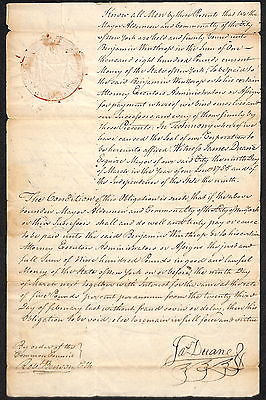 Know all Men by these Presents that we the
Mayor Aldermen and Commonalty of the City
of New York are held and firmly bound unto
Benjamin Winthrop in the Sum of One
thousand eight hundred Pounds current
Money of the State of New York, To be paid to
the said Benjamin Winthrop or his certain
Attorney Executors Administrators or Assigns
for payment whereof we bind ourselves and
our Successors and every of them firmly by
these Presents. In Testimony whereof we
have caused the Seal of our Corporation to
be hereunto affixed Witness James Duane
Esquire Mayor of our said City the ninth Day
of March in the Year of our Lord 1785 and of
the independence of the State the ninth.
The Condition of this Obligation is such that if the above
bounden Mayor Aldermen and Commonalty of the City of New York
or their Successors shall and do well and truly pay or
cause to be paid unto the said Benjamin Winthrop or his certain
Attorney Executors Administrators or Assigns the just and
full Sum of Nine hundred Pounds in good and lawful
Money of the State of New York on or before the ninth Day
of March next together with Interest for the same at the rate
of five Pounds per cent per annum from the twenty third
Day of February last without fraud or delay, then this
Obligation to be void, else to remain in full force and virtue
By order of the
Common Council
Jas. Duane